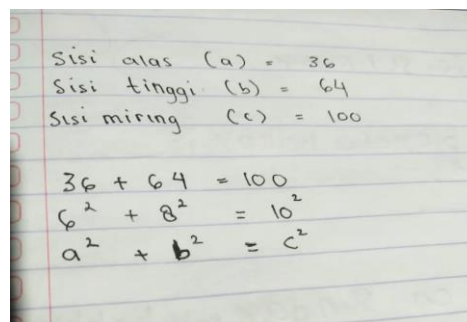 Sisi alas (a) = 36
Sisi tinggi (b) = 64
Sisi miring (c) = 100
36 + 64 = 100
6² + 8² = 10²
a² + b² = c²